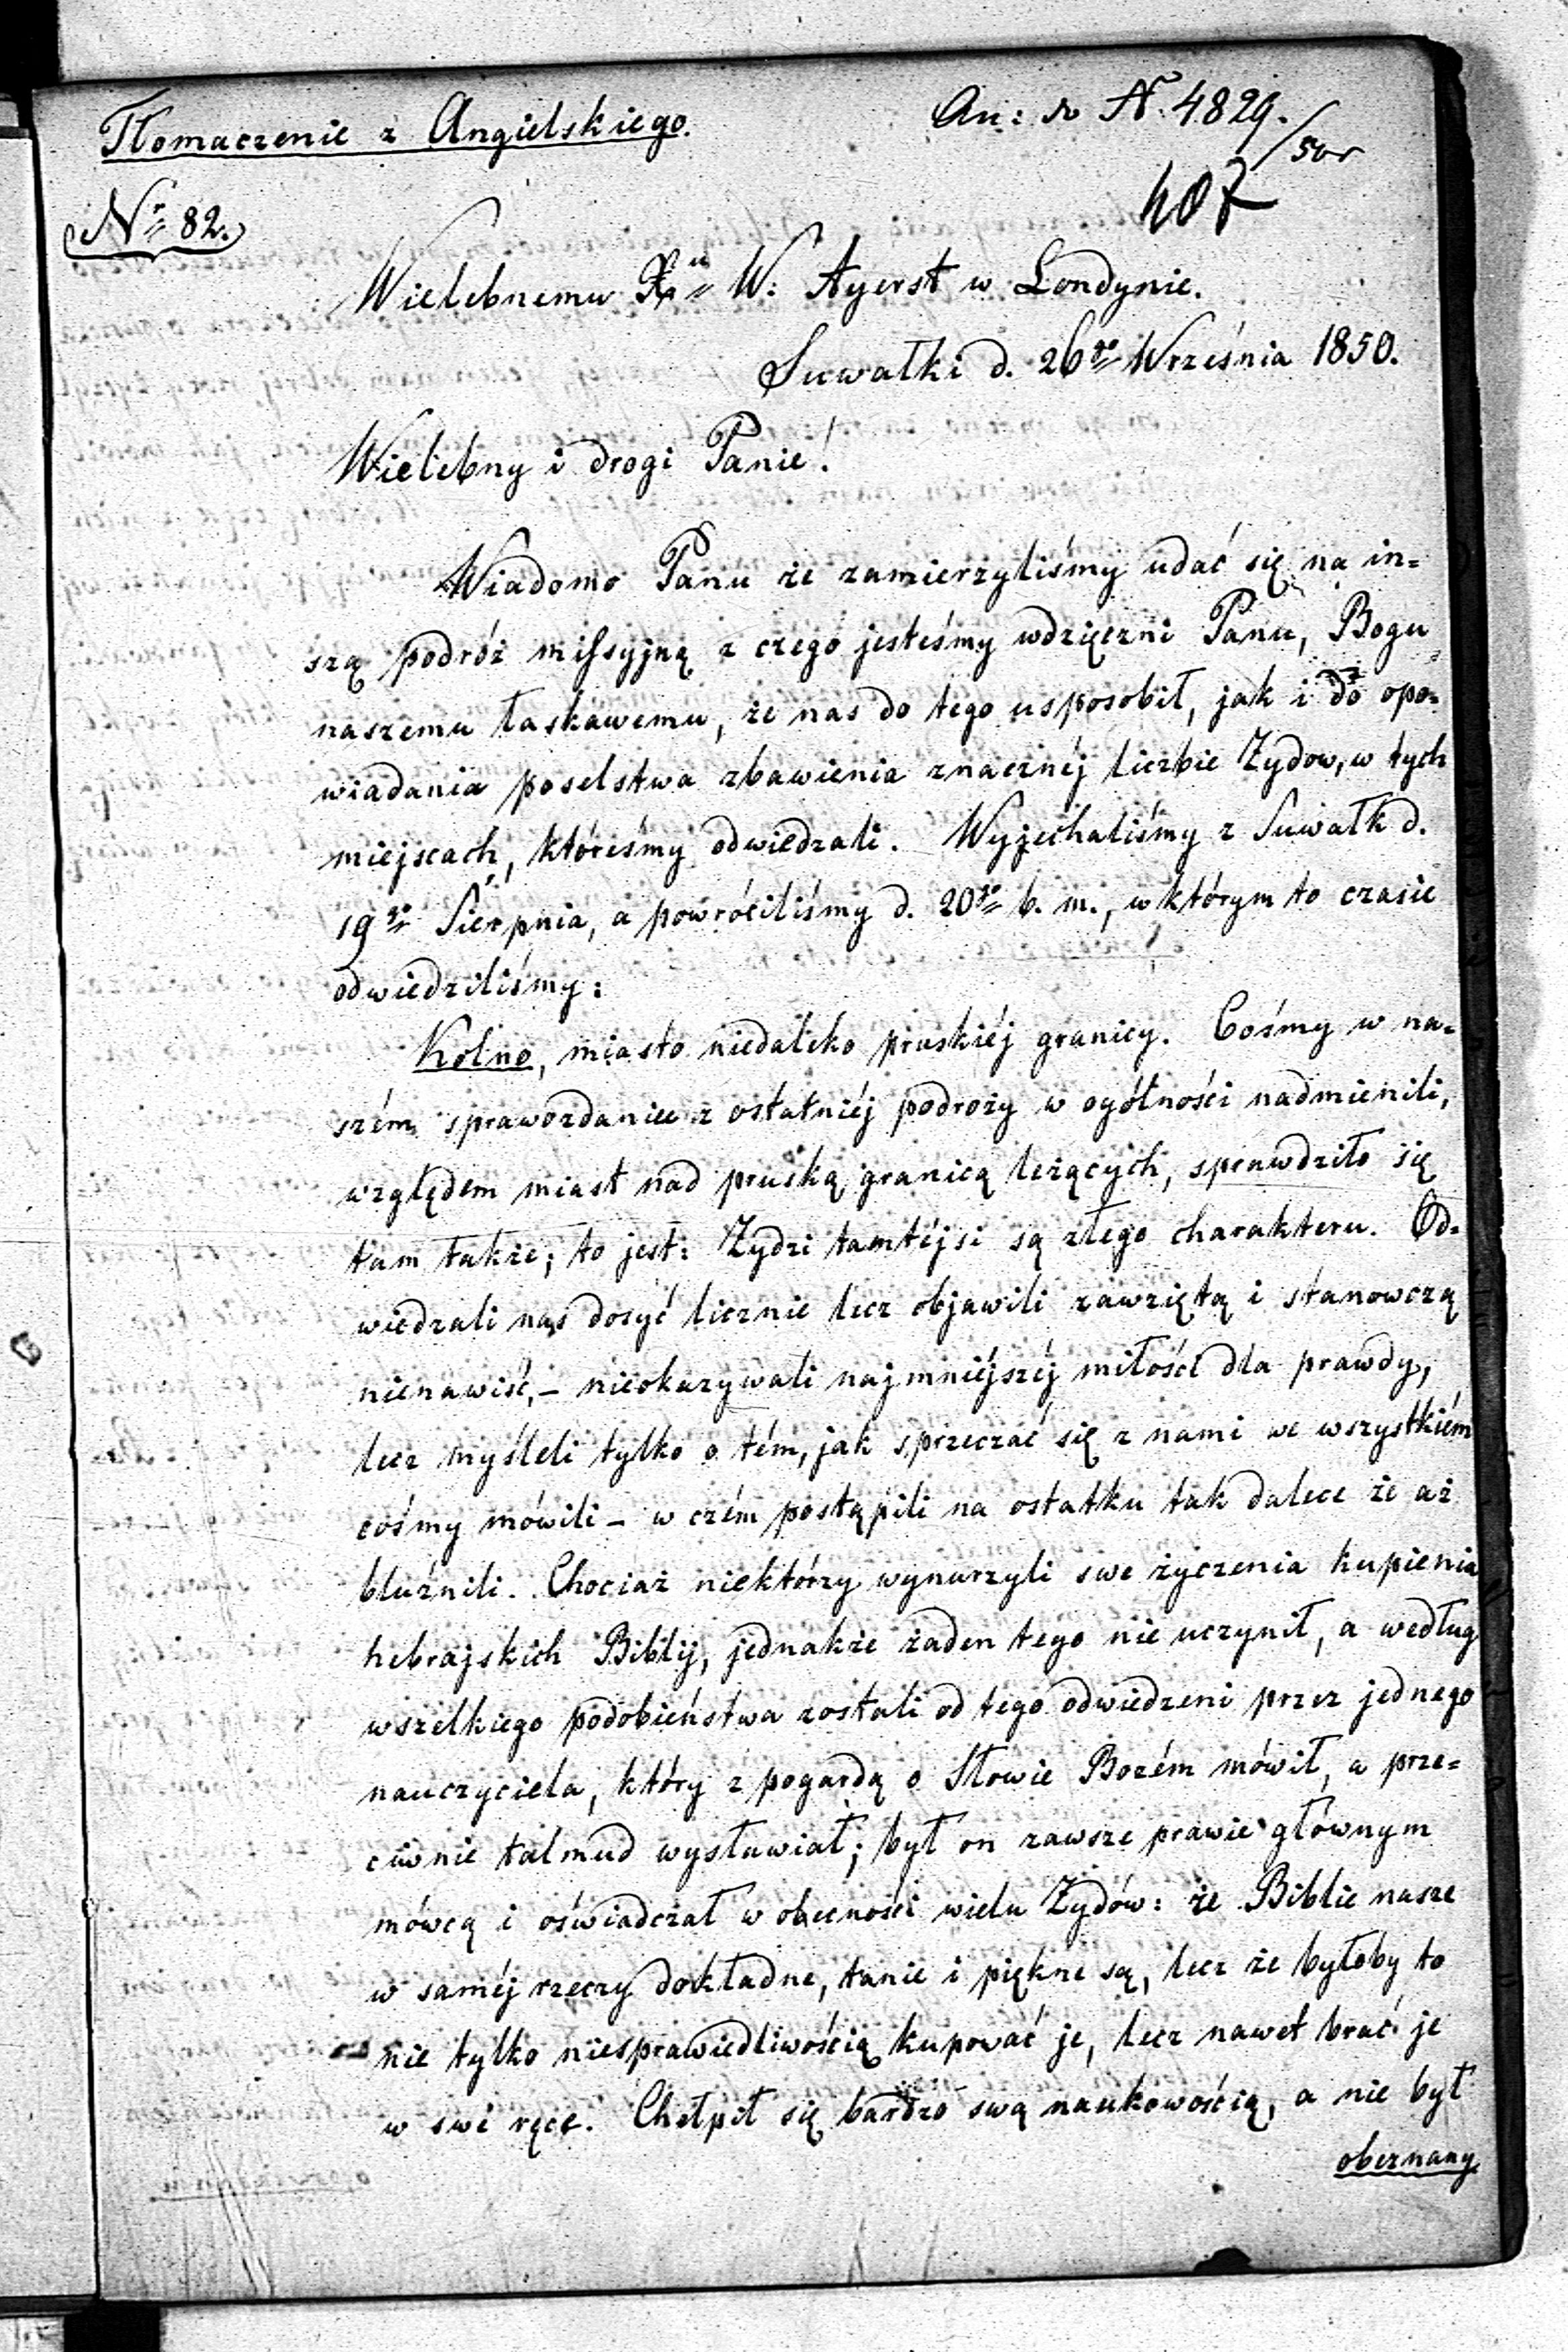 Tłomaczenie z Angielskiego.
An: do N. 4829./50r
407
Nr 82.
Wielebnemu Xu W: Ayerst w Londynie.
Suwałki d. 26go Września 1850.
Wielebny i drogi Panie!
Wiadomo Panu że zamierzyliśmy udać się na in=
szą podróż missyjną z czego jesteśmy wdzięczni Panu, Bogu
naszemu łaskawemu, że nas do tego usposobił, jak i do opo=
wiadania poselstwa zbawienia znacznéj liczbie Żydow, w tych
miejscach, któreśmy odwiedzali. Wyjechaliśmy z Suwałk d.
19go Sierpnia, a powróciliśmy d. 20go b. m., w którym to czasie
odwiedziliśmy:
Kolno, miasto niedaleko pruskiéj granicy. Cośmy w na=
szém sprawozdaniu z ostatniéj podroży w ogólności nadmienili,
względem miast nad pruską granicą leżących, sprawdziło się
tam także; to jest: Żydzi tamtéjsi są złego charakteru. Od=
wiedzali nas dosyć licznie lecz objawili zawziętą i stanowczą
nienawiść, – nieokazywali najmniéjszéj miłości dla prawdy,
lecz myśleli tylko o tém, jak sprzeczać się z nami we wszystkiém
cośmy mówili – w czém postąpili na ostatku tak dalece że aż
bluźnili. Chociaż niektórzy wynurzyli swe życzenia kupienia
hebrajskich Biblij, jednakże żaden tego nie uczynił, a według
wszelkiego podobieństwa zostali od tego odwiedzeni przez jednego
nauczyciela, który z pogardą o Słowie Bożém mówił, a prze=
ciwnie talmud wysławiał; był on zawsze prawie głównym
mówcą i oświadczał w obecności wielu Żydów: że Biblie nasze
w saméj rzeczy dokładne, tanie i piękne są, lecz że byłoby to
nie tylko niesprawiedliwością kupować je, lecz nawet brać je
w swe ręce. Chełpił się bardzo swą naukowością, a nie był
obeznany